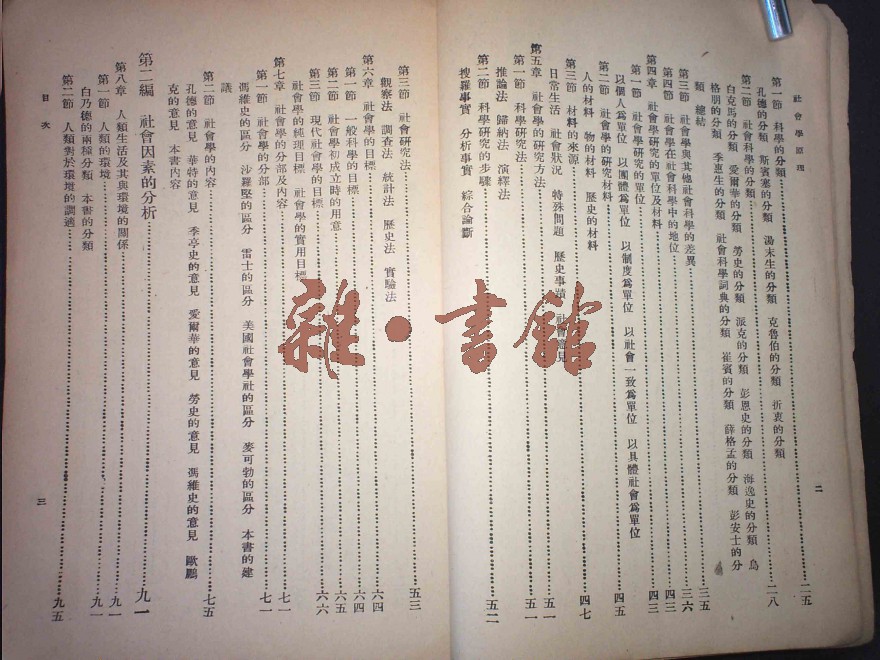 社會學原理
二
第一節 科學的分類……二五
孔德的分類 斯賓塞的分類 湯末生的分類 克魯伯的分類 折衷的分類
第二節 社會科學的分類……二八
白克馬的分類 愛爾華的分類 勞史的分類 派克的分類 彭恩史的分類 海逸史的分類 烏
格朋的分類 季惠生的分類 社會科學詞典的分類 崔賓的分類 薛格孟的分類 彭安士的分
類 總結……三五
第三節 社會學與其他社會科學的差異……三六
第四章 社會學在社會科學中的地位……四三
第四章 社會學研究的單位及材料……四三
第一節 社會學研究的單位
以個人爲單位 以團體爲單位 以制度爲單位 以社會一致爲單位 以具體社會爲單位
第二節 社會學的研究材料……四五
人的材料 物的材料 歷史的材料
第三節 材料的來源……四七
日常生活 社會狀況 特殊問題 歷史事蹟 社會意見
第五章 社會學的研究方法……五一
第一節 科學研究法……五一
推論法 歸納法 演繹法
第二節 科學研究的步驟……五二
搜羅事實 分析事實 綜合論斷
第三節 社會研究法……五三
觀察法 調查法 統計法 歷史法 實驗法
第六章 社會學的目標……六四
第一節 一般科學的目標……六四
第二節 社會學初成立時的用意……六五
第三節 現代社會學的目標……六六
社會學的純理目標 社會學的實用目標
第七章 社會學的分部及內容……七一
第一節 社會學的分部……七一
馮維史的區分 沙羅堅的區分 雷士的區分 美國社會學社的區分 麥可勃的區分 本書的建
議
第二節 社會學的內容……七五
孔德的意見 華特的意見 季亭史的意見 愛爾華的意見 勞史的意見 馮維史的意見 歐鵬
克的意見 本書內容
第二編 社會因素的分析……九一
第八章 人類生活及其與環境的關係……九一
第一節 人類的環境……九一
白乃德的兩種分類 本書的分類
第二節 人類對於環境的調適……九五
目次
三
雜·書館